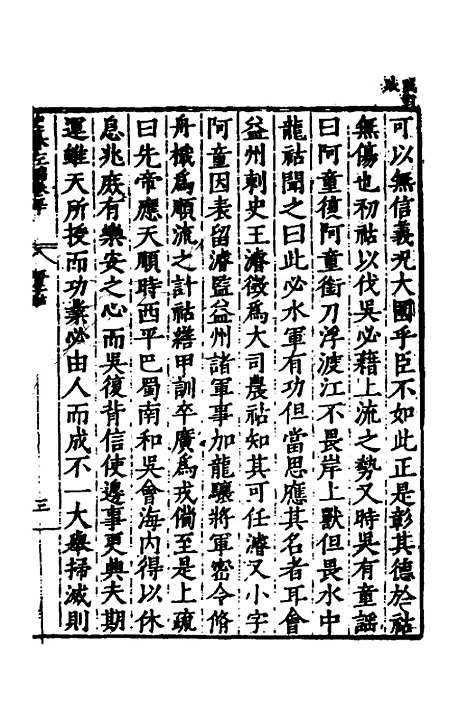 可以無信義况大國乎臣不如此正是彰其德於祜
無傷也初祜以伐吳必藉上流之勢又時吳有童謡
曰阿童復阿童銜刀浮渡江不畏岸上獸但畏水中
龍祜聞之曰此必水軍有功但當思應其名者耳會
益州刺史王濬徵爲大司農祜知其可任濬又小字
阿童因表留濬監益州諸軍事加龍驤將軍密令脩
舟檝爲順流之計祜繕甲訓卒廣爲戎偹至是上疏
曰先帝應天順時西平巴蜀南和吳會海内得以休
息兆庶有樂安之心而吳復背信使邊事更興夫期
運雖天所授而功業必由人而成不一大舉掃滅則
三